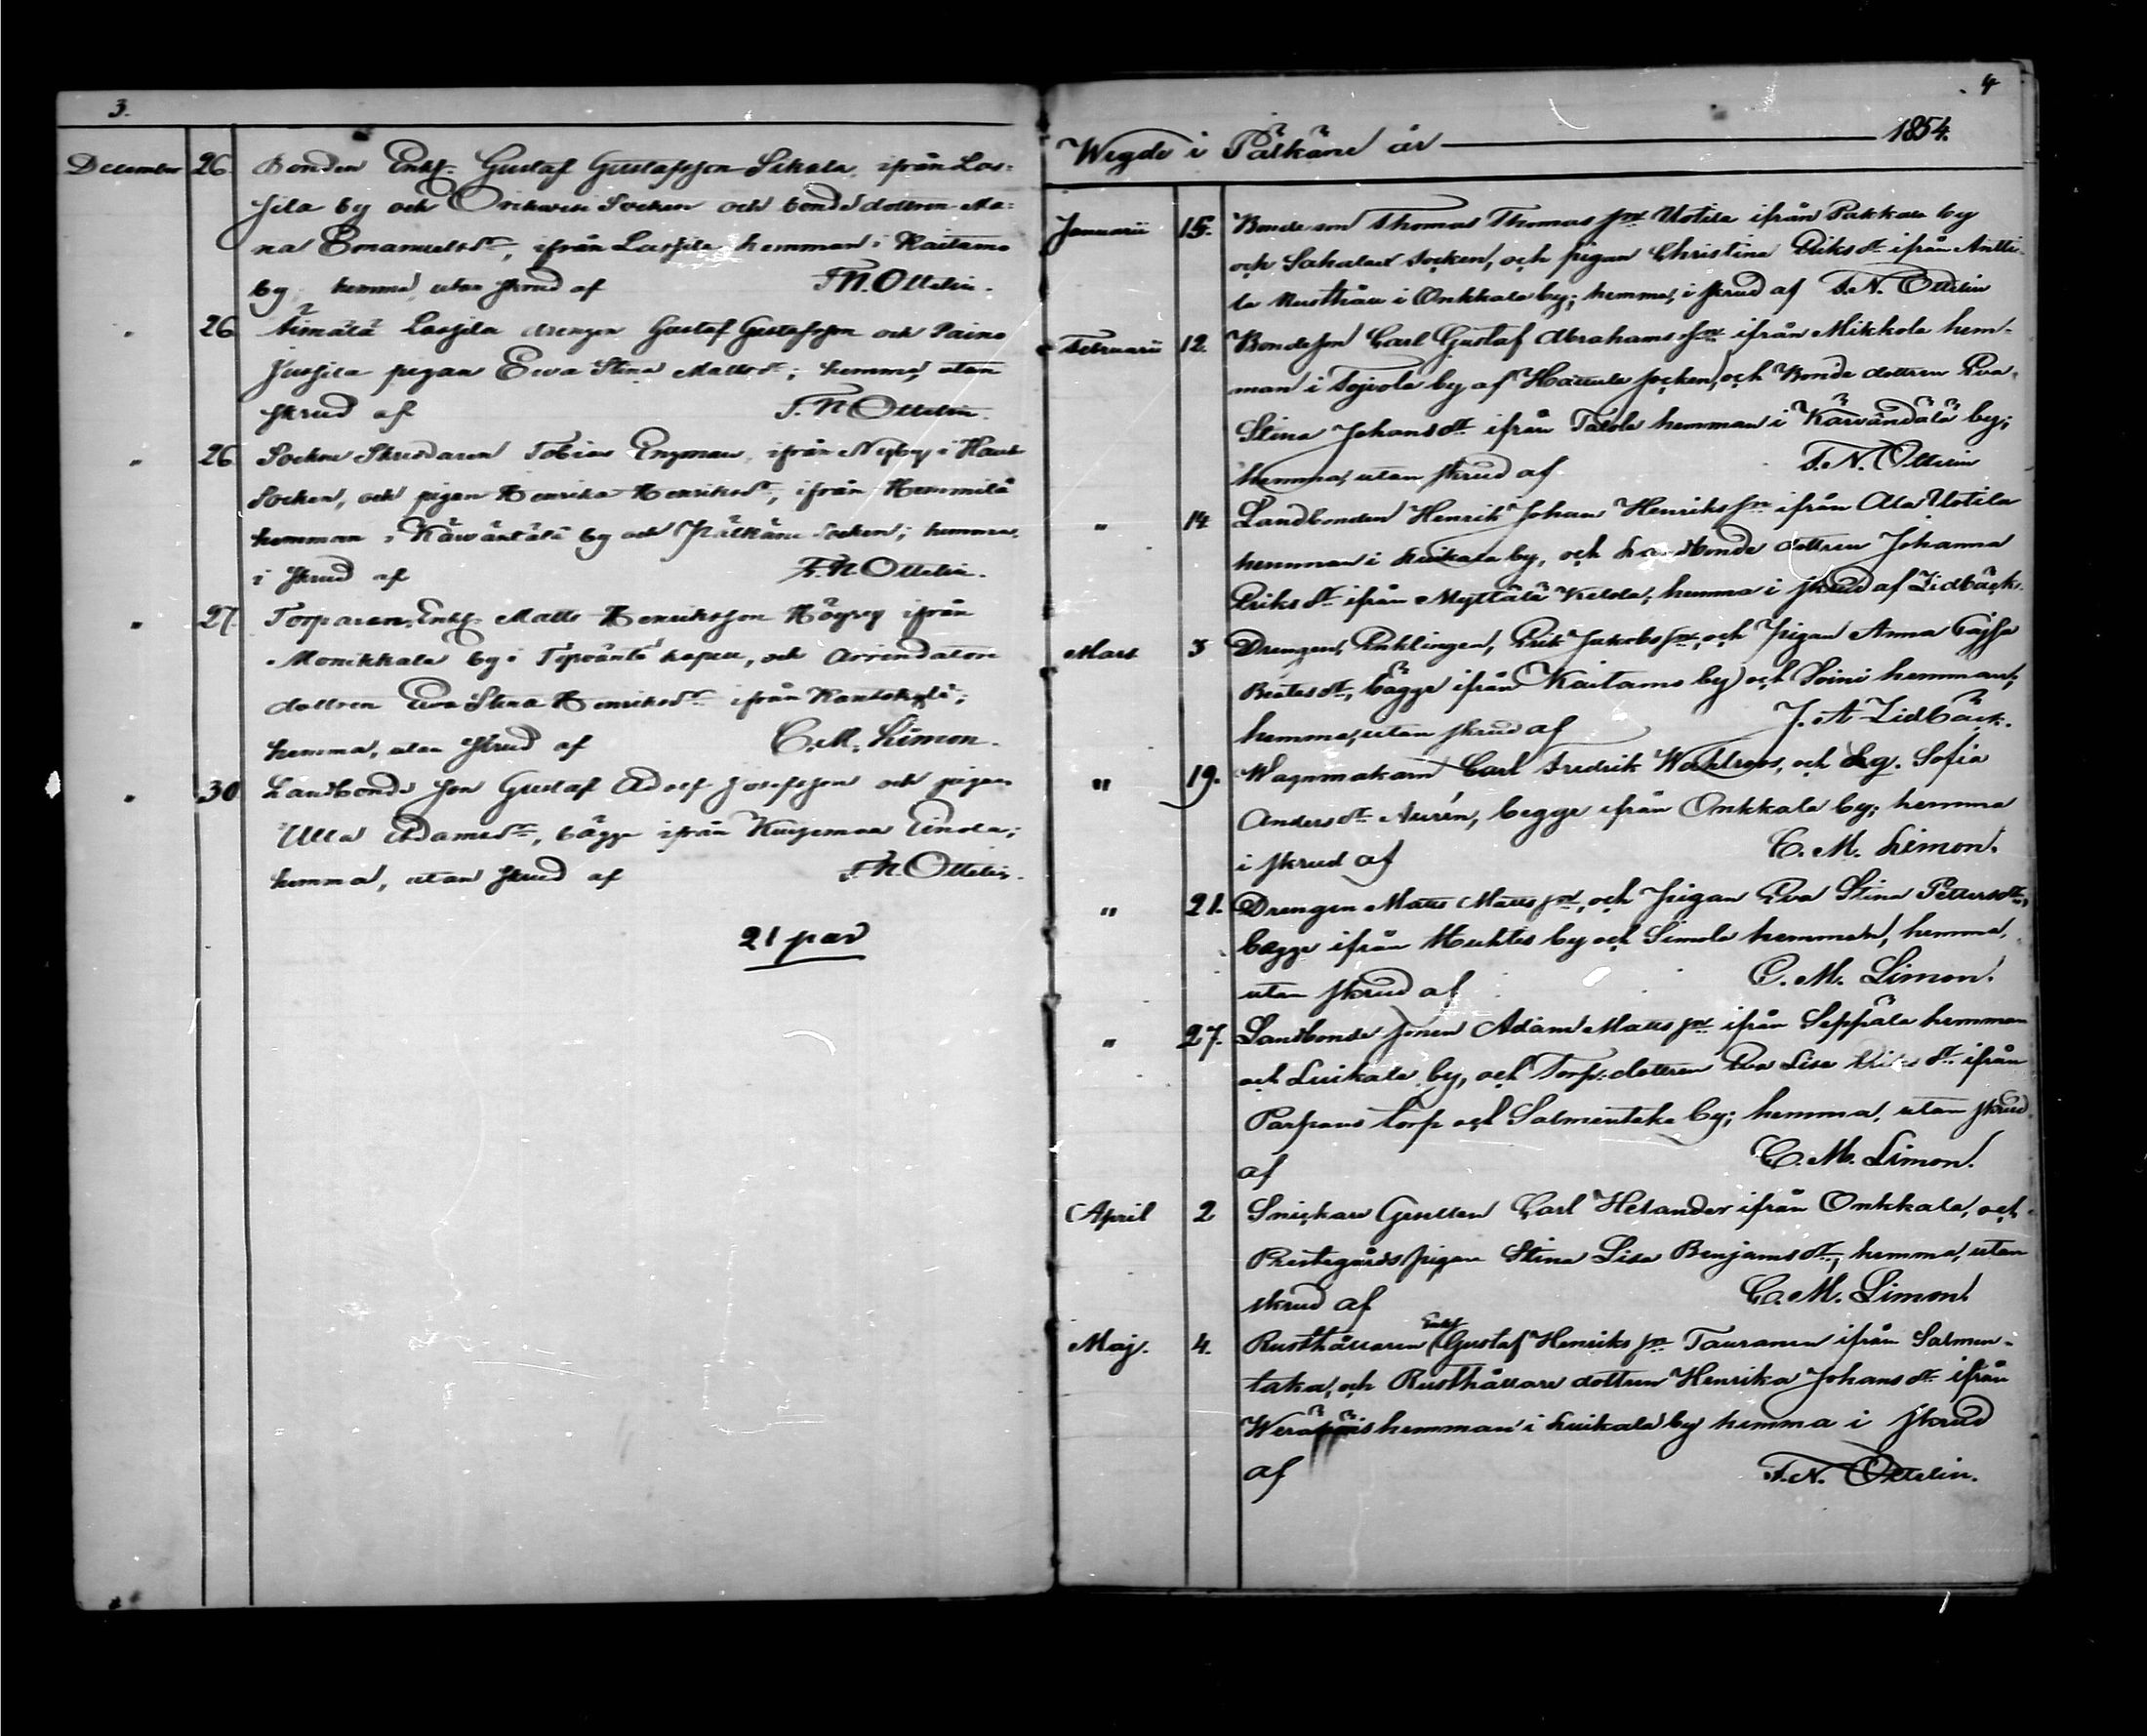 3.
December 26 Bonden Enkl. Gustaf Gustafsson Sikala, ifrån Las=
sila by och Orihvesi Socken och bonde dottren Ma=
na Emanuelsdr, ifrån Lassila hemman i Kaitamo
by hemma, utan skrud af F.N. Ottelin.
" 26 Äimälä Lassila drengen Gustaf Gustafsson och Paino
Jussila pigan Ewa Stina Mattsdr; hemma, utan
skrud af F.N. Ottelin.
" 26 Sockne Skreddaren Tobias Engman, ifrån Nyby i Hauho
Socken, och pigan Henrika Henriksdr, ifrån Hemmilä
hemman i Kärväntälä by och Pälkäne Socken; hemma,
i skrud af F.N. Ottelin.
" 27 Torparen, Enkl. Matts Henriksson Högreg ifrån
Monikkala by i kapell, och Arrendators
dottren Eva Stina Henriksdr ifrån Kantokylä;
hemma, utan skrud af C.M. Limon.
" 30 Landbonde son Gustaf Adolf Josefsson och pigan
Ulla Adamsdr, bägge ifrån Einola;
hemma, utan skrud af F.N. Ottelin.
21 par
4
Wigde i Pälkäne år 1854.
Januarii 15. Bondeson Thomas Thomas sn Uotila ifrån Pakkala by
och Sahalax socken, och pigan Christina Eriks dr ifrån Antti-
la Rusthåll i Onkkala by; hemma, i skrud af F.N. Ottelin
Februarii 12. Bondeson Carl Gustaf Abrahams sn ifrån Mikkola hem-
man i by af Hattula socken, och Bonde dottren Eva
Stina Johans dr ifrån Talola hemman i Kärvändälä by;
hemma, utan skrud af F.N. Ottelin
" 14 Landbonden Henrik Johan Henriks sn ifrån Ala Uotila
hemman i Luikala by, och Landbonde dottren Johanna
Eriks dr ifrån Myttälä hemma i skrud af Lidbäck.
Mars 3 Drengen, Enklingen, Erik Jakobs sn, och Pigan Anna Cajsa
Beatas dr, bägge ifrån Kaitamo by och Soini hemman;
hemma, utan skrud af J. A Lidbäck.
" 19. Wagnmakarn Carl Fredrik Wahlroos, och Sofia
Anders dr Aurén, begge ifrån Onkkala by; hemma
i skrud af C. M. Limon.
" 21. Drengen Matts Matts sn, och Pigan Eva Stina Petters dr,
begge ifrån Huhtis by och Simola hemman, hemma,
utan skrud af C. M. Limon.
" 27. Landbonde sonen Adam Matts sn ifrån Seppälä hemman
och Luikala by, och Torp. dottren Eva Lisa dr ifrån
torp och Salmentaka by; hemma, utan skrud
af C. M. Limon.
April 2 Snickare Gesellen Carl Helander ifrån Onkkala, och
Prestegårds pigan Stina Lisa Benjams dr, hemma, utan
skrud af C. M. Limon.
Maj. 4. Rusthållaren Enkl. Gustaf Henriks sn Tauranen ifrån Salmen-
taka, och Rusthållare dottren Henrika Johans dr ifrån
hemman i Luikala by hemma i skrud
af F.N. Ottelin.